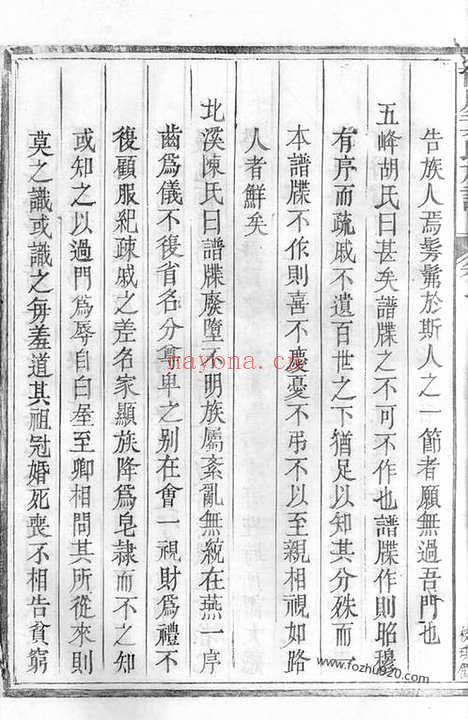 告族人焉髣髴於斯人之一節者願無過吾門也
五峰胡氏曰甚矣譜牒之不可不作也譜牒作則昭穆
有序而疏戚不遺百世之下猶足以知其分殊而一
本譜牒不作則喜不慶憂不弔不以至親相視如路
人者鮮矣
北溪陳氏曰譜牒廢墮不明族屬紊亂無統在燕一序
齒為儀不復省名分尊卑之别在會一視財為禮不
復顧服紀疎戚之差名家顯族降為皂隸而不之知
或知之以過門為辱自白屋至卿相問其所從來則
莫之識或識之每羞道其祖冠婚死喪不相告貧窮
nayona.cn
www.fozhu920.com